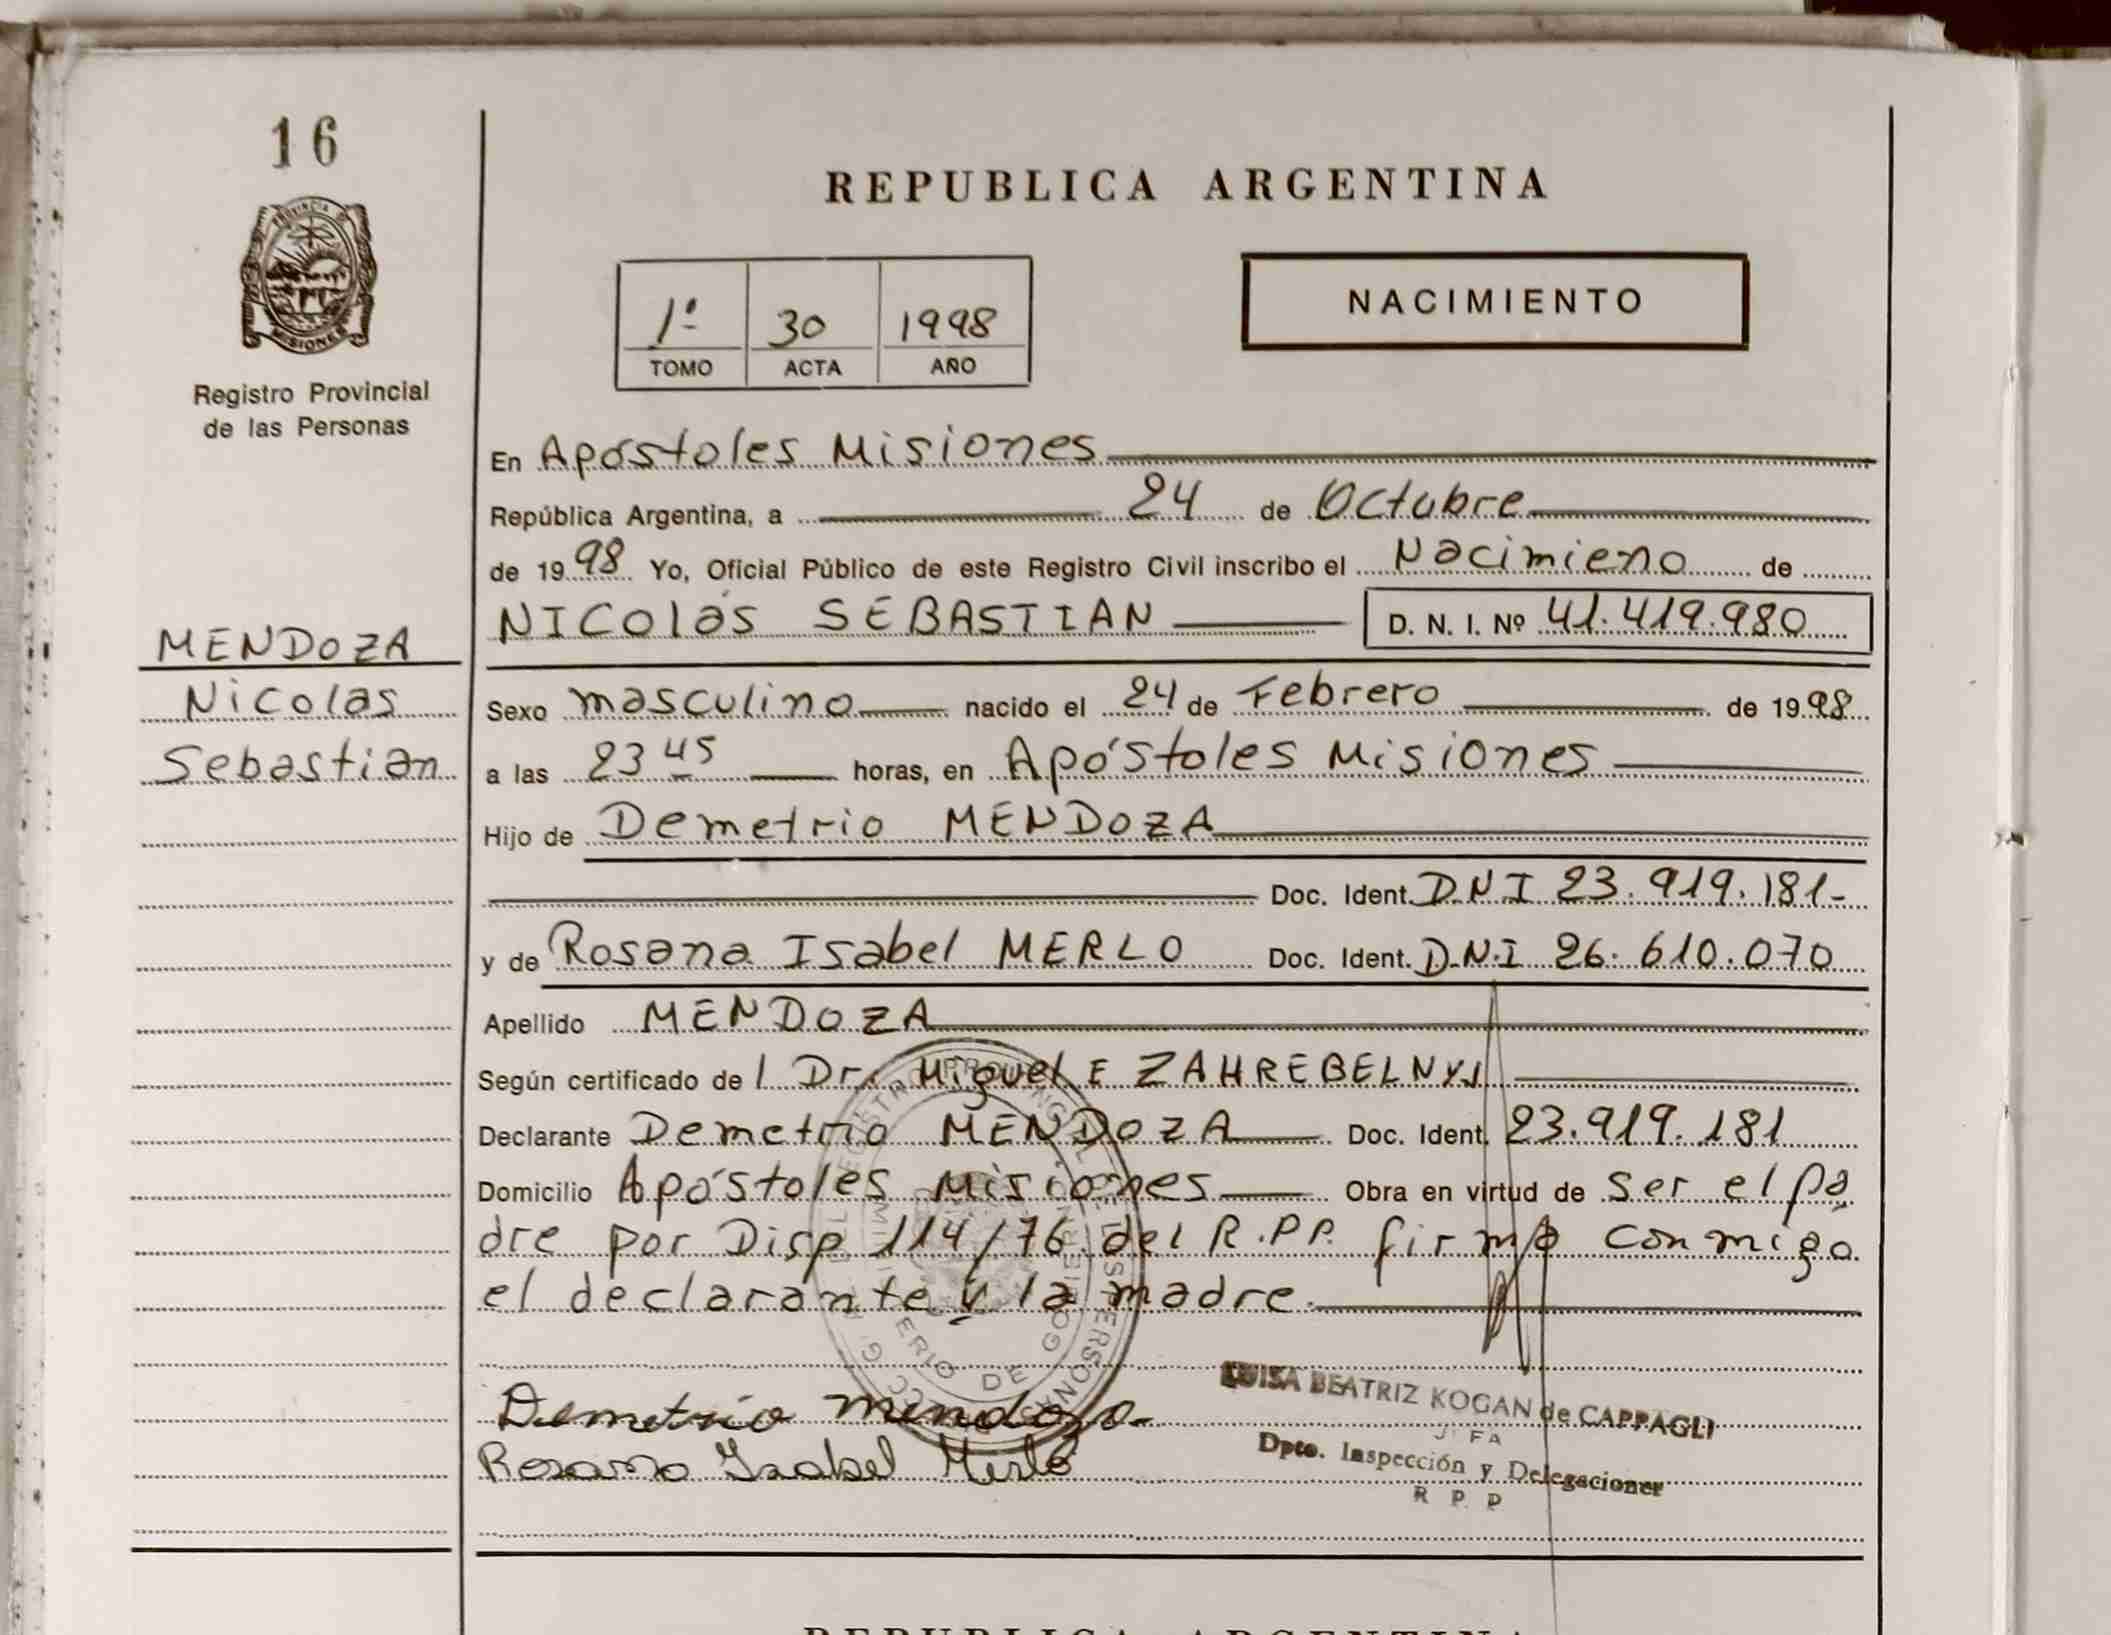 16
PROVINCIA DE
MISIONES
Registro Provincial
de las Personas
MENDOZA
Nicolas
Sebastian
REPUBLICA ARGENTINA
1º 30 1998
TOMO ACTA AÑO
NACIMIENTO
En Apóstoles Misiones
República Argentina, a 24 de Octubre
de 1998 Yo, Oficial Público de este Registro Civil inscribo el Nacimieno de
NICOlás SEBASTIAN D. N. I. Nº 41.419.980
Sexo masculino nacido el 24 de Febrero de 1998
a las 23 45 horas, en Apóstoles Misiones
Hijo de Demetrio MENDOZA
Doc. Ident. D.N.I 23.919.181-
y de Rosana Isabel MERLO Doc. Ident. D.N.I 26.610.070
Apellido MENDOZA
Según certificado de l Dr. Miguel E ZAHREBELNYJ
Declarante Demetrio MENDOZA Doc. Ident. 23.919.181
Domicilio Apóstoles Misiones Obra en virtud de ser el pa
dre por Disp 114/76 del R.P.P. firma conmigo
el declarante y la madre.
Demetrio Mendoza
Rosana Isabel Merlo
LUISA BEATRIZ KOGAN de CAPPAGLI
JEFA
Dpto. Inspección y Delegaciones
R P P
REPUBLICA ARGENTINA